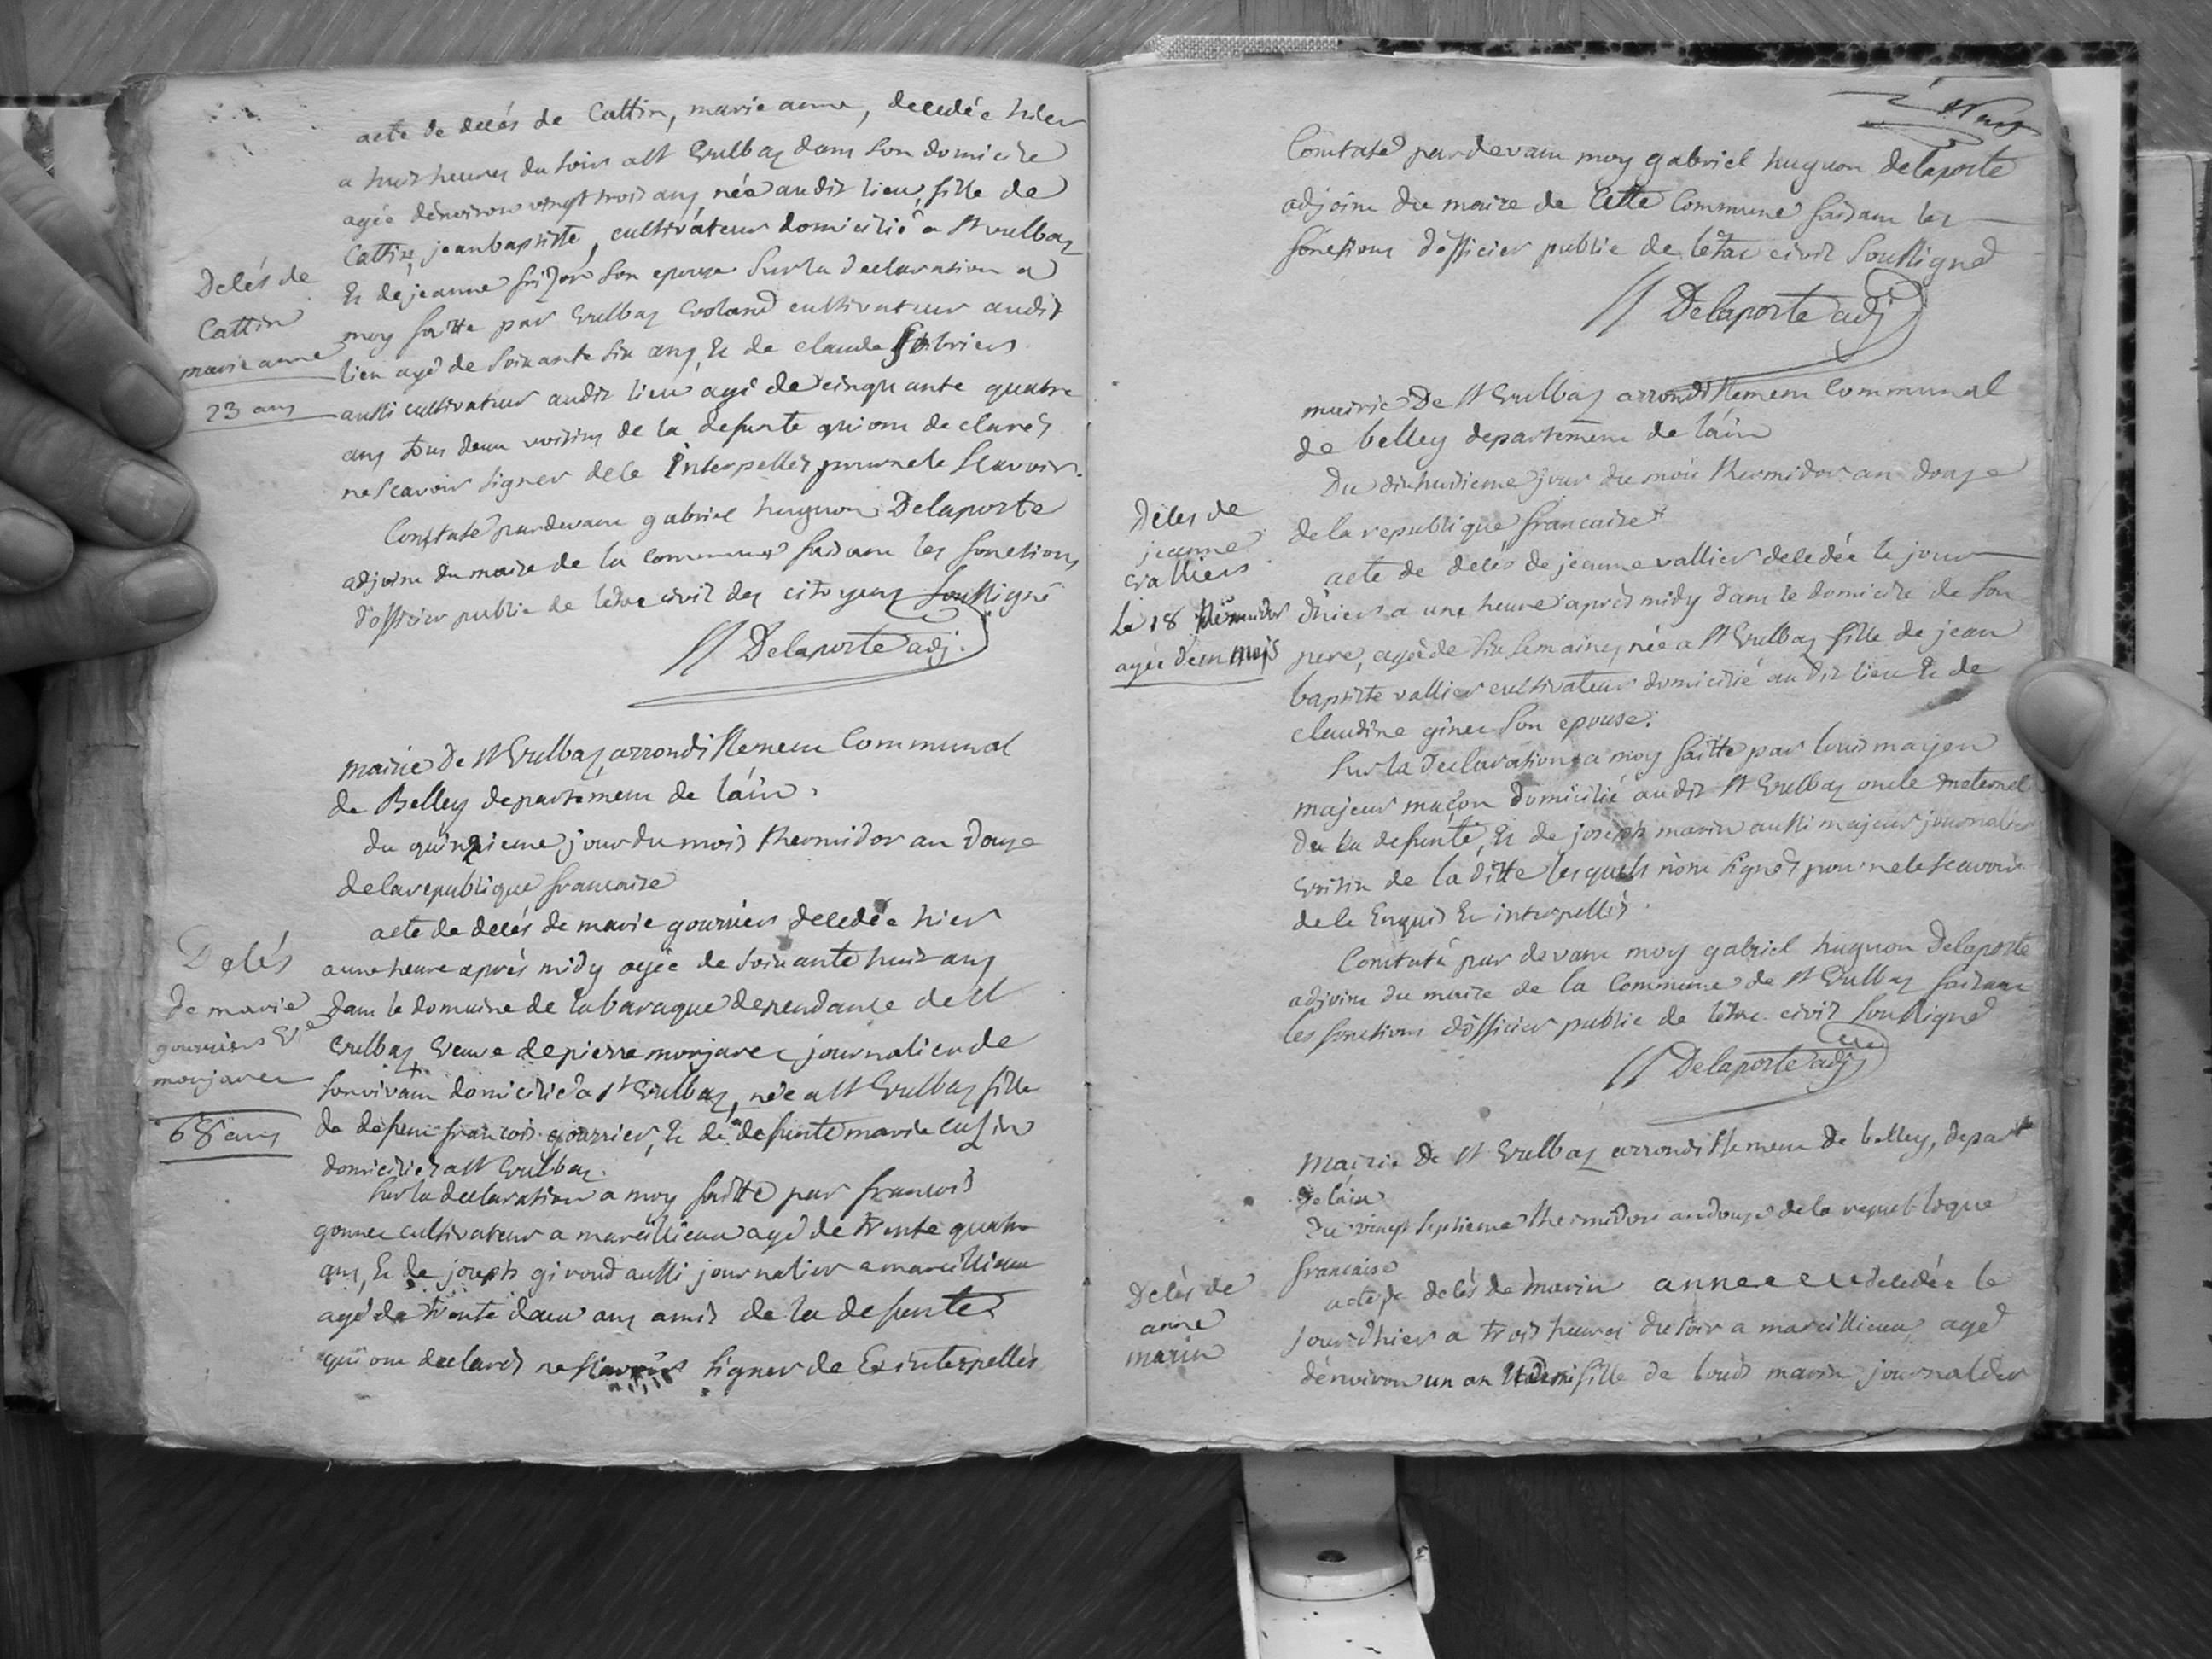 acte de decés de Cattin, marie anne, decedée hier
a huit heures du soir a St Vulbaz dans son domicile
agée dénviron vingt trois ans, née audit lieu, fille de
Cattin, jean baptiste, cultivateur domicilié a St vulbaz
Et de jeanne son epouse sur la declaration a
moy faitte par Vulbaz cultivateur audit
lieu agé de soixante six ans, Et de claude
aussi cultivateur audit lieu agé de cinquante quatre
ans tous deux voisins de la defunte qui ont declarés
ne scavoir signer de ce interpellés pour ne le scavoir.
Constaté pardevant gabriel huguon Delaporte
adjoint du maire de la commune faisant les fonctions
d'officier public de létat civil des citoyens soussigné
Delaporte adj.
Decés de
Cattin
marie anne
23 ans
Mairie De St Vulbaz arrondissement Communal
de Belley departement de láin.
du quinzieme jour du mois thermidor an douze
de la republique francaise
acte de decés de marie gourrier decedée hier
a une heure aprés midy agée de soixante huit ans
dans le domaine de la baraque dependance de St
Vulbaz, Veuve de pierre monjaret journalier de
son vivant domicilié a St Vulbaz, née a St Vulbaz fille
de defunt francois gourrier, Et de defunte marie cusin
domiciliés a St Vulbaz.
Sur la declaration a moy faitte par francois
gonnet cultivateur a marcillieux agé de trente quatre
ans, Et de joseph giroud aussi journalier a marcillieux
agé de trente deux ans amis de la defunte
qui ont declarés ne scavoir signer de Ce interpellés
Decés
de marie
gourriers Ve
monjaret
68 ans
Constaté pardevant moy gabriel huguon delaporte
adjoint du maire de Cette Commune faisant les
fonctions d'officier public de létat civil soussigné
Delaporte adj
mairie De St Vulbaz arrondissement Communal
de belley departement de láin
Du dix huitieme jour du mois thermidor an douze
de la republique francaise
acte de decés de jeanne vallier decedée le jour
d'hier a une heure aprés midy dans le domicile de son
pere, agée de six semaines, née a St Vulbaz fille de jean
baptiste vallier cultivateur domicilié au dit lieu Et de
claudine ginet son epouse.
Sur la declaration a moy faitte par louis
majeur maçon domicilié audit St Vulbaz oncle maternel
de la defunte, Et de joseph marin aussi majeur journalier
voisin de la ditte lesquels nont signés pour ne le scavoir
de ce Enquis Et interpellés.
Constaté par devant moy gabriel huguon Delaporte
adjoint du maire de la Commune de St Vulbaz faisant
les fonctions d'officier public de létat civil soussigné
Delaporte adj
Décés de
jeanne
Valliers
Le 18 thermidor
agée d'un mois
Mairie De St Vulbaz arrondissement de belley, depart
de láin
Du vingt septieme thermidor an douze de la republique
francaise
acte de decés de marin anne decedée le
jour d'hier a trois heures du soir a marcillieux, agé
dénviron un an Et demi fille de louis marin journalier
Decés de
anne
marin